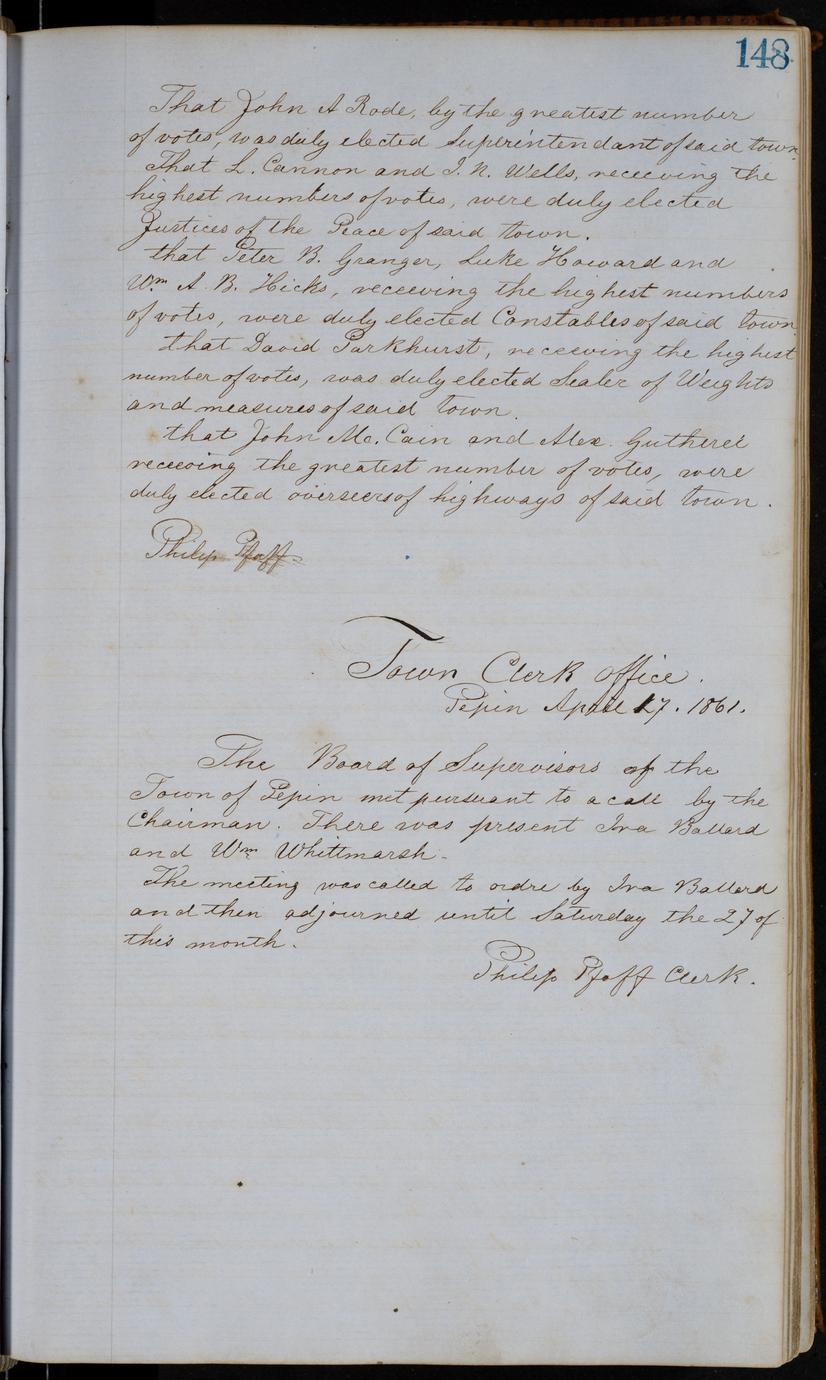 148
That John A Rode, by the greatest number
of votes, was duly elected Superintendant of said town
That L. Cannon and I. N. Wells, receiving the
highest numbers of votes, were duly elected
Justices of the Peace of said town.
that Peter B. Granger, Luke Howard and
Wm A. B. Hicks, receeving the highest numbers
of votes, were duly elected Constables of said town.
that David Parkhurst, receeving the highest
number of votes, was duly elected Sealer of Weights
and measures of said town.
that John Mc. Cain and Alex. Gutherie
receeving the greatest number of votes, were
duly elected overseers of highways of said town.
Philip Pfaff
Town Clerk office.
Pepin April 17. 1861.
The Board of Supervisors of the
Town of Pepin met pursuant to a call by the
Chairman. There was present Ira Ballard
and Wm Whittmarsh.
The meeting was called to ordre by Ira Ballard
and then adjourned until Saturday the 27 of
this month.
Philip Pfaff Clerk.